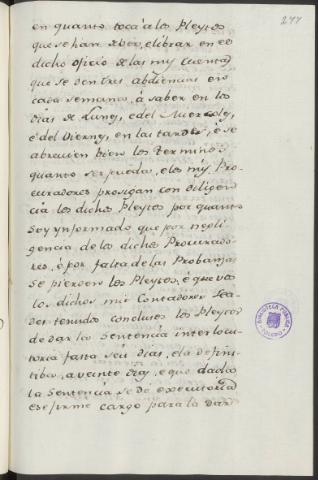 277
en quanto toca á los Pleytos
que se han de ver, é librar en el
dicho oficio de las mis cuentas
que se den tres abdiencias en
cada semana, á saber en los
dias de Lunes, é del Miercoles,
é del Viernes, en las tardes, é se
abrevien bien los terminos
quanto ser pueda, é los mis Pro-
curadores prosigan con diligen-
cia los dichos Pleytos por quanto
soy ynformado que por negli-
gencia de los dichos Procurado-
res, é por falta de las Probanzas
se pierden los Pleytos, é que
los dichos mis Contadores sea-
der tenudos conclusos los Pleytos
de dar la Sentencia interlocu-
toria fasta seis dias, é la defini-
tiba, a veinte dias, é que dada
la Sentencia se dé executoria
é se firme cargo para la dar
BIBLIOTECA PUBLICA
TOLEDO